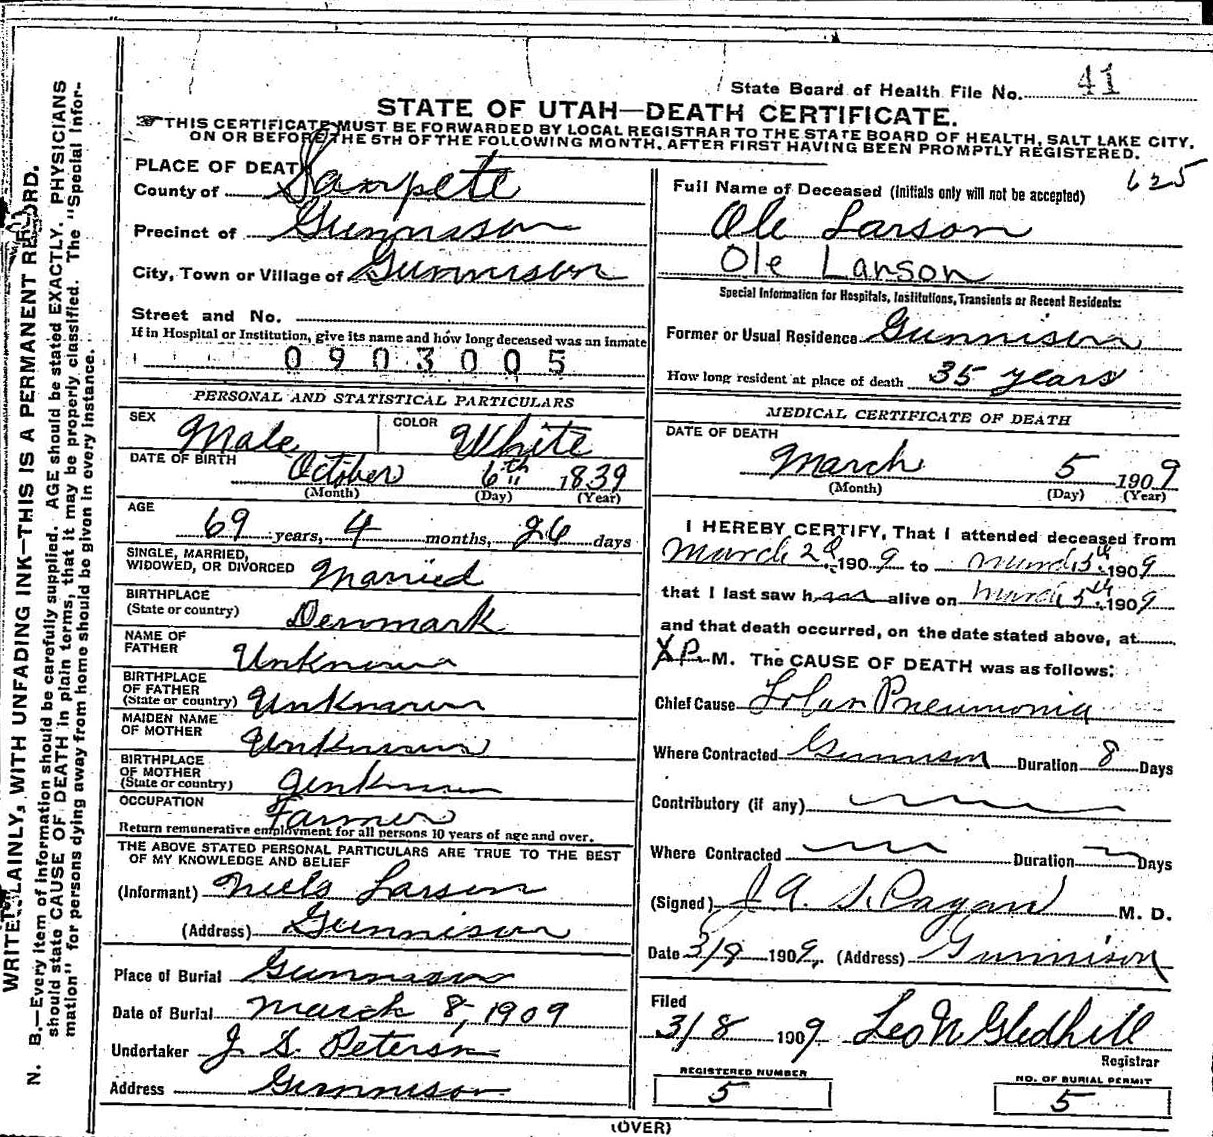 State Board of Health File No. 41
STATE OF UTAH—DEATH CERTIFICATE.
THIS CERTIFICATE MUST BE FORWARDED BY LOCAL REGISTRAR TO THE STATE BOARD OF HEALTH, SALT LAKE CITY,
ON OR BEFORE THE 5TH OF THE FOLLOWING MONTH, AFTER FIRST HAVING BEEN PROMPTLY REGISTERED.
625
WRITE PLAINLY, WITH UNFADING INK—THIS IS A PERMANENT RECORD.
N. B.—Every item of information should be carefully supplied. AGE should be stated EXACTLY. PHYSICIANS
should state CAUSE OF DEATH in plain terms, that it may be properly classified. The "Special Infor-
mation" for persons dying away from home should be given in every instance.
PLACE OF DEATH
County of Sanpete
Precinct of Gunnison
City, Town or Village of Gunnison
Street and No.
If in Hospital or Institution, give its name and how long deceased was an inmate
0903005
PERSONAL AND STATISTICAL PARTICULARS
SEX Male COLOR White
DATE OF BIRTH October 6th 1839
(Month) (Day) (Year)
AGE
69 years, 4 months, 26 days
SINGLE, MARRIED,
WIDOWED, OR DIVORCED Married
BIRTHPLACE
(State or country) Denmark
NAME OF
FATHER Unknown
BIRTHPLACE
OF FATHER
(State or country) Unknown
MAIDEN NAME
OF MOTHER Unknown
BIRTHPLACE
OF MOTHER
(State or country) Unknown
OCCUPATION Farmer
Return remunerative employment for all persons 10 years of age and over.
THE ABOVE STATED PERSONAL PARTICULARS ARE TRUE TO THE BEST
OF MY KNOWLEDGE AND BELIEF
(Informant) Niels Larson
(Address) Gunnison
Place of Burial Gunnison
Date of Burial March 8, 1909
Undertaker J S Peterson
Address Gunnison
Full Name of Deceased (Initials only will not be accepted)
Ole Larson
Ole Larson
Special Information for Hospitals, Institutions, Transients or Recent Residents:
Former or Usual Residence Gunnison
How long resident at place of death 35 years
MEDICAL CERTIFICATE OF DEATH
DATE OF DEATH
March 5 1909
(Month) (Day) (Year)
I HEREBY CERTIFY, That I attended deceased from
March 2d 1909 to March 5th 1909
that I last saw h alive on March 5th 1909
and that death occurred, on the date stated above, at
P. M. The CAUSE OF DEATH was as follows:
Chief Cause Lobar Pneumonia
Where Contracted Gunnison Duration 8 Days
Contributory (if any)
Where Contracted Duration Days
(Signed) J A. M. D.
Date 3/9 1909, (Address) Gunnison
Filed
3/8 1909 Leo N Gledhill
Registrar
REGISTERED NUMBER
5
NO. OF BURIAL PERMIT
5
(OVER)